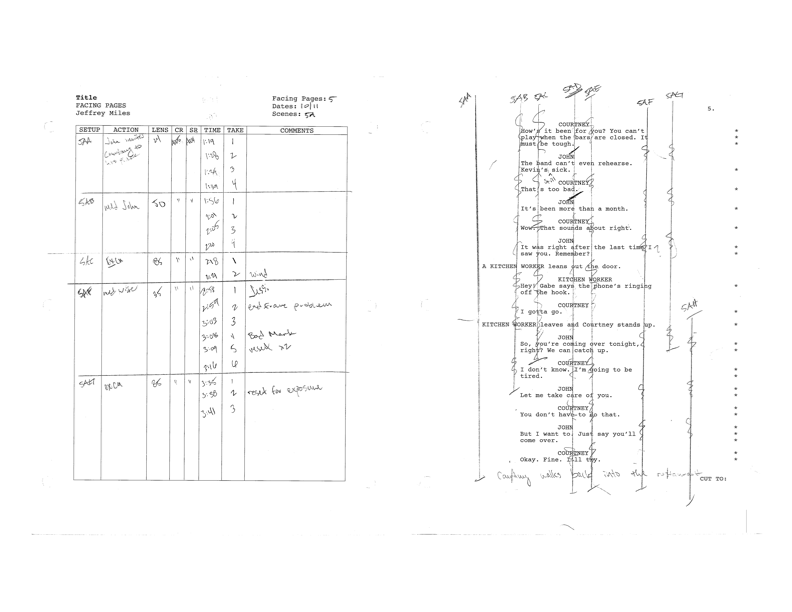 Title
FACING PAGES
Jeffrey Miles
Facing Pages: 5
Dates: 10/11
Scenes: 5A
SETUP ACTION LENS CR SR TIME TAKE COMMENTS
5AA John
Courtney to
1:19 1
1:28 2
3
4
5AB med John 50 " " 1:56 1
2:01 2
2:05 3
4
5AC ECU 85 " " 2:18 1
2:19 2 wind
85 " " 2:53 1
2:59 2 end frame problem
3:03 3
3:08 4 Bad Mark
3:09 5 reset x2
3:16 6
ECU 85 " " 3:35 1
3:38 2 reset for exposure
3:41 3
5AA 5AB 5AC 5AD 5AE 5AF 5AG
5.
COURTNEY
How's it been for you? You can't
play when the bars are closed. It
must be tough.
JOHN
The band can't even rehearse.
Kevin's sick.
still
COURTNEY
That's too bad.
JOHN
It's been more than a month.
COURTNEY
Wow. That sounds about right.
JOHN
It was right after the last time I
saw you. Remember?
A KITCHEN WORKER leans out the door.
KITCHEN WORKER
Hey! Gabe says the phone's ringing
off the hook.
COURTNEY
I gotta go.
5AH
KITCHEN WORKER leaves and Courtney stands up.
JOHN
So, you're coming over tonight,
right? We can catch up.
COURTNEY
I don't know. I'm going to be
tired.
JOHN
Let me take care of you.
COURTNEY
You don't have to do that.
JOHN
But I want to. Just say you'll
come over.
COURTNEY
Okay. Fine. I'll try.
Courtney walks back into the restaurant
CUT TO: